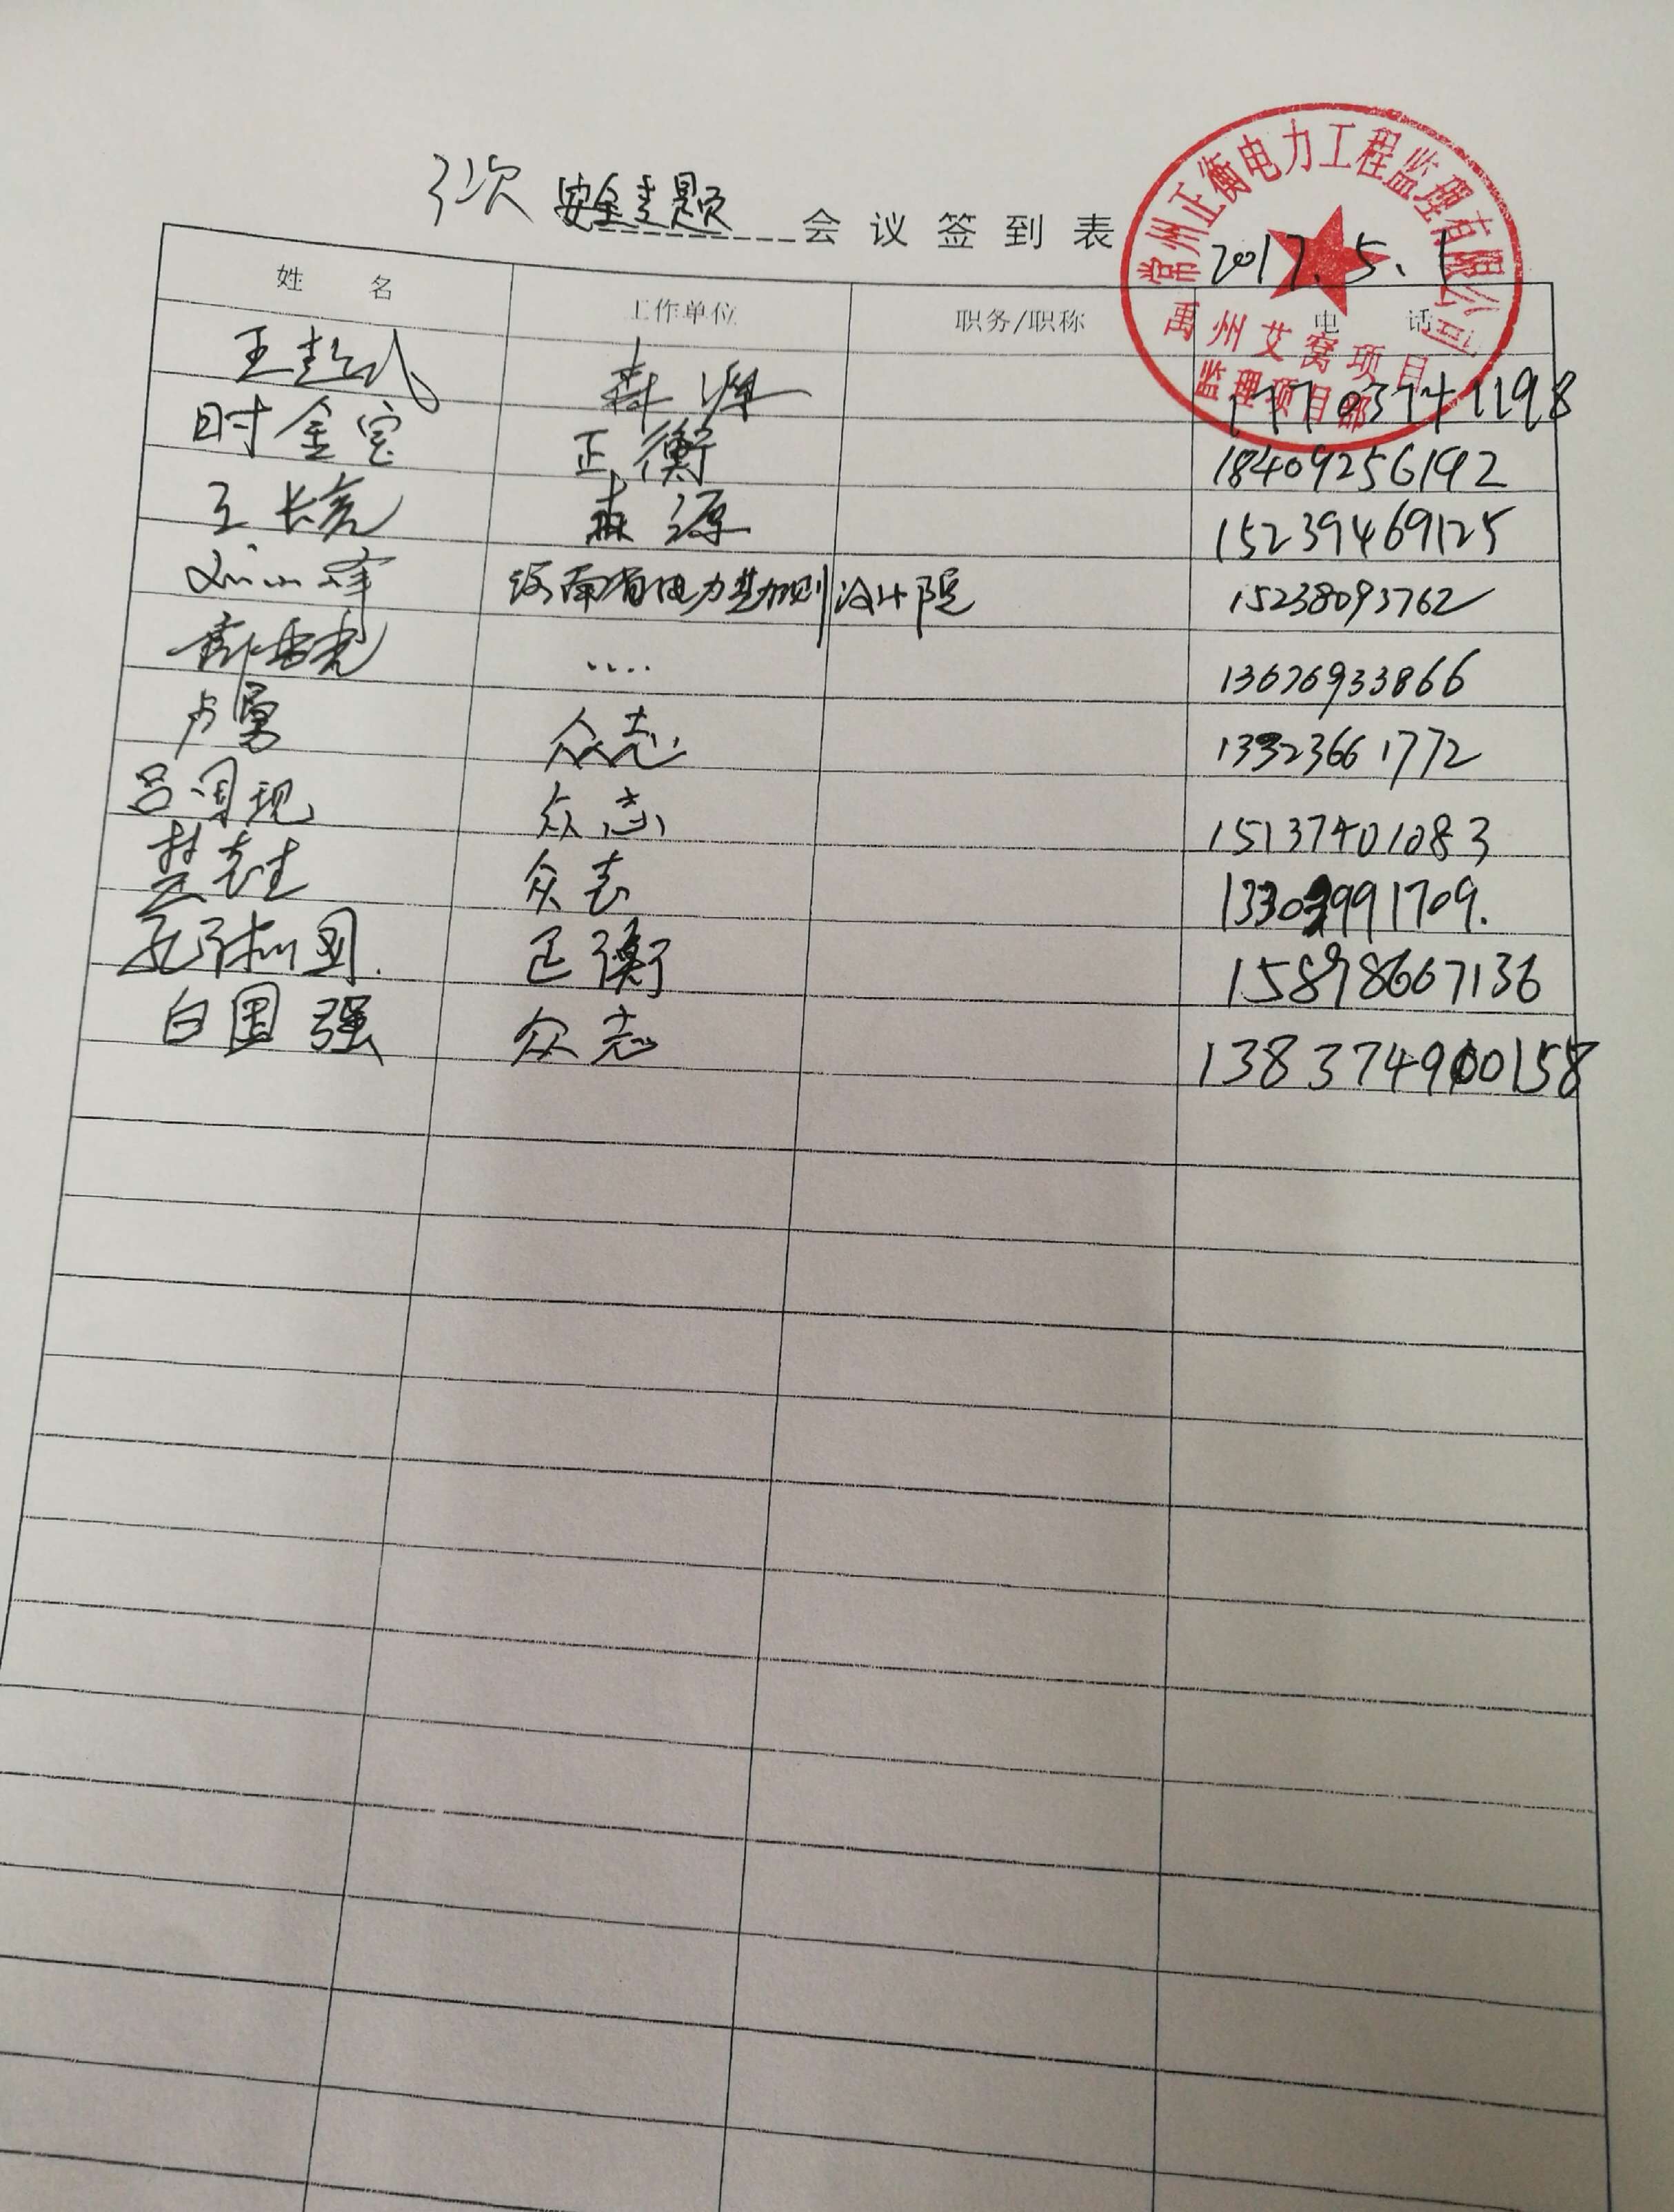 次 安全专题 会议签到表
常州正衡电力工程监理有限公司
2017.5.1
禹州艾窝项目
监理项目部
姓 名 工作单位 职务/职称 电 话
王 森源 17703741198
时金宝 正衡 18409256192
王长亮 森源 15239469125
峰 河南省电力勘测设计院 15238093762
.... 13676933866
卢勇 众志 13323661772
吕国现 众志 15137401083
楚志 众志 991709.
正衡 15898667136
白国强 众志 138374900158